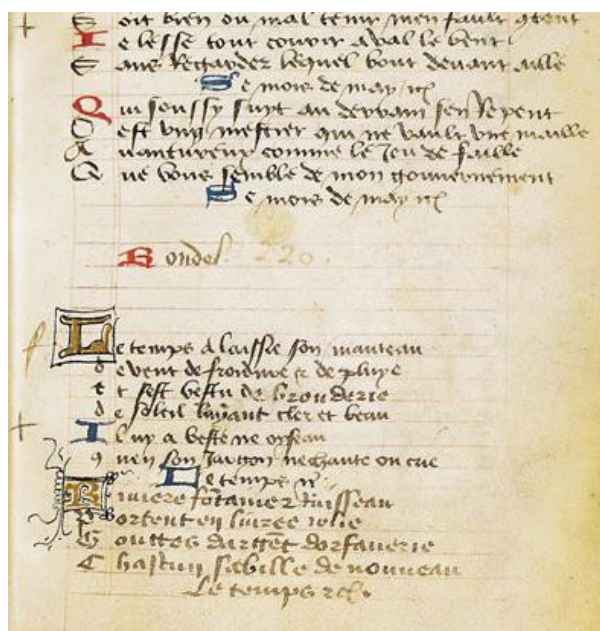 Soit bien ou mal tenir men fault content
Je lesse tout courir aval le vent
Sans Regarder lequel bout devant aille
Se mois de may etc
Qui soussy suyt au derrain sen Repent
Cest ung mestier qui ne vault une maille
Avantureux comme le Jeu de faille
Que vous semble de mon gouvernement
Se mois de may etc
Rondel. 220.
Le temps a laissie son manteau
de vent de froidure & de pluye
et sest vestu de brouderie
de soleil luyant cler et beau
Il ny a beste ne oyseau
quen son Jargon ne chante ou crie
Le temps etc
Riviere fontaine & ruisseau
Portent en livree jolie
Gouttes dargent dorfaverie
Chascun sabille de nouveau
Le temps etc.